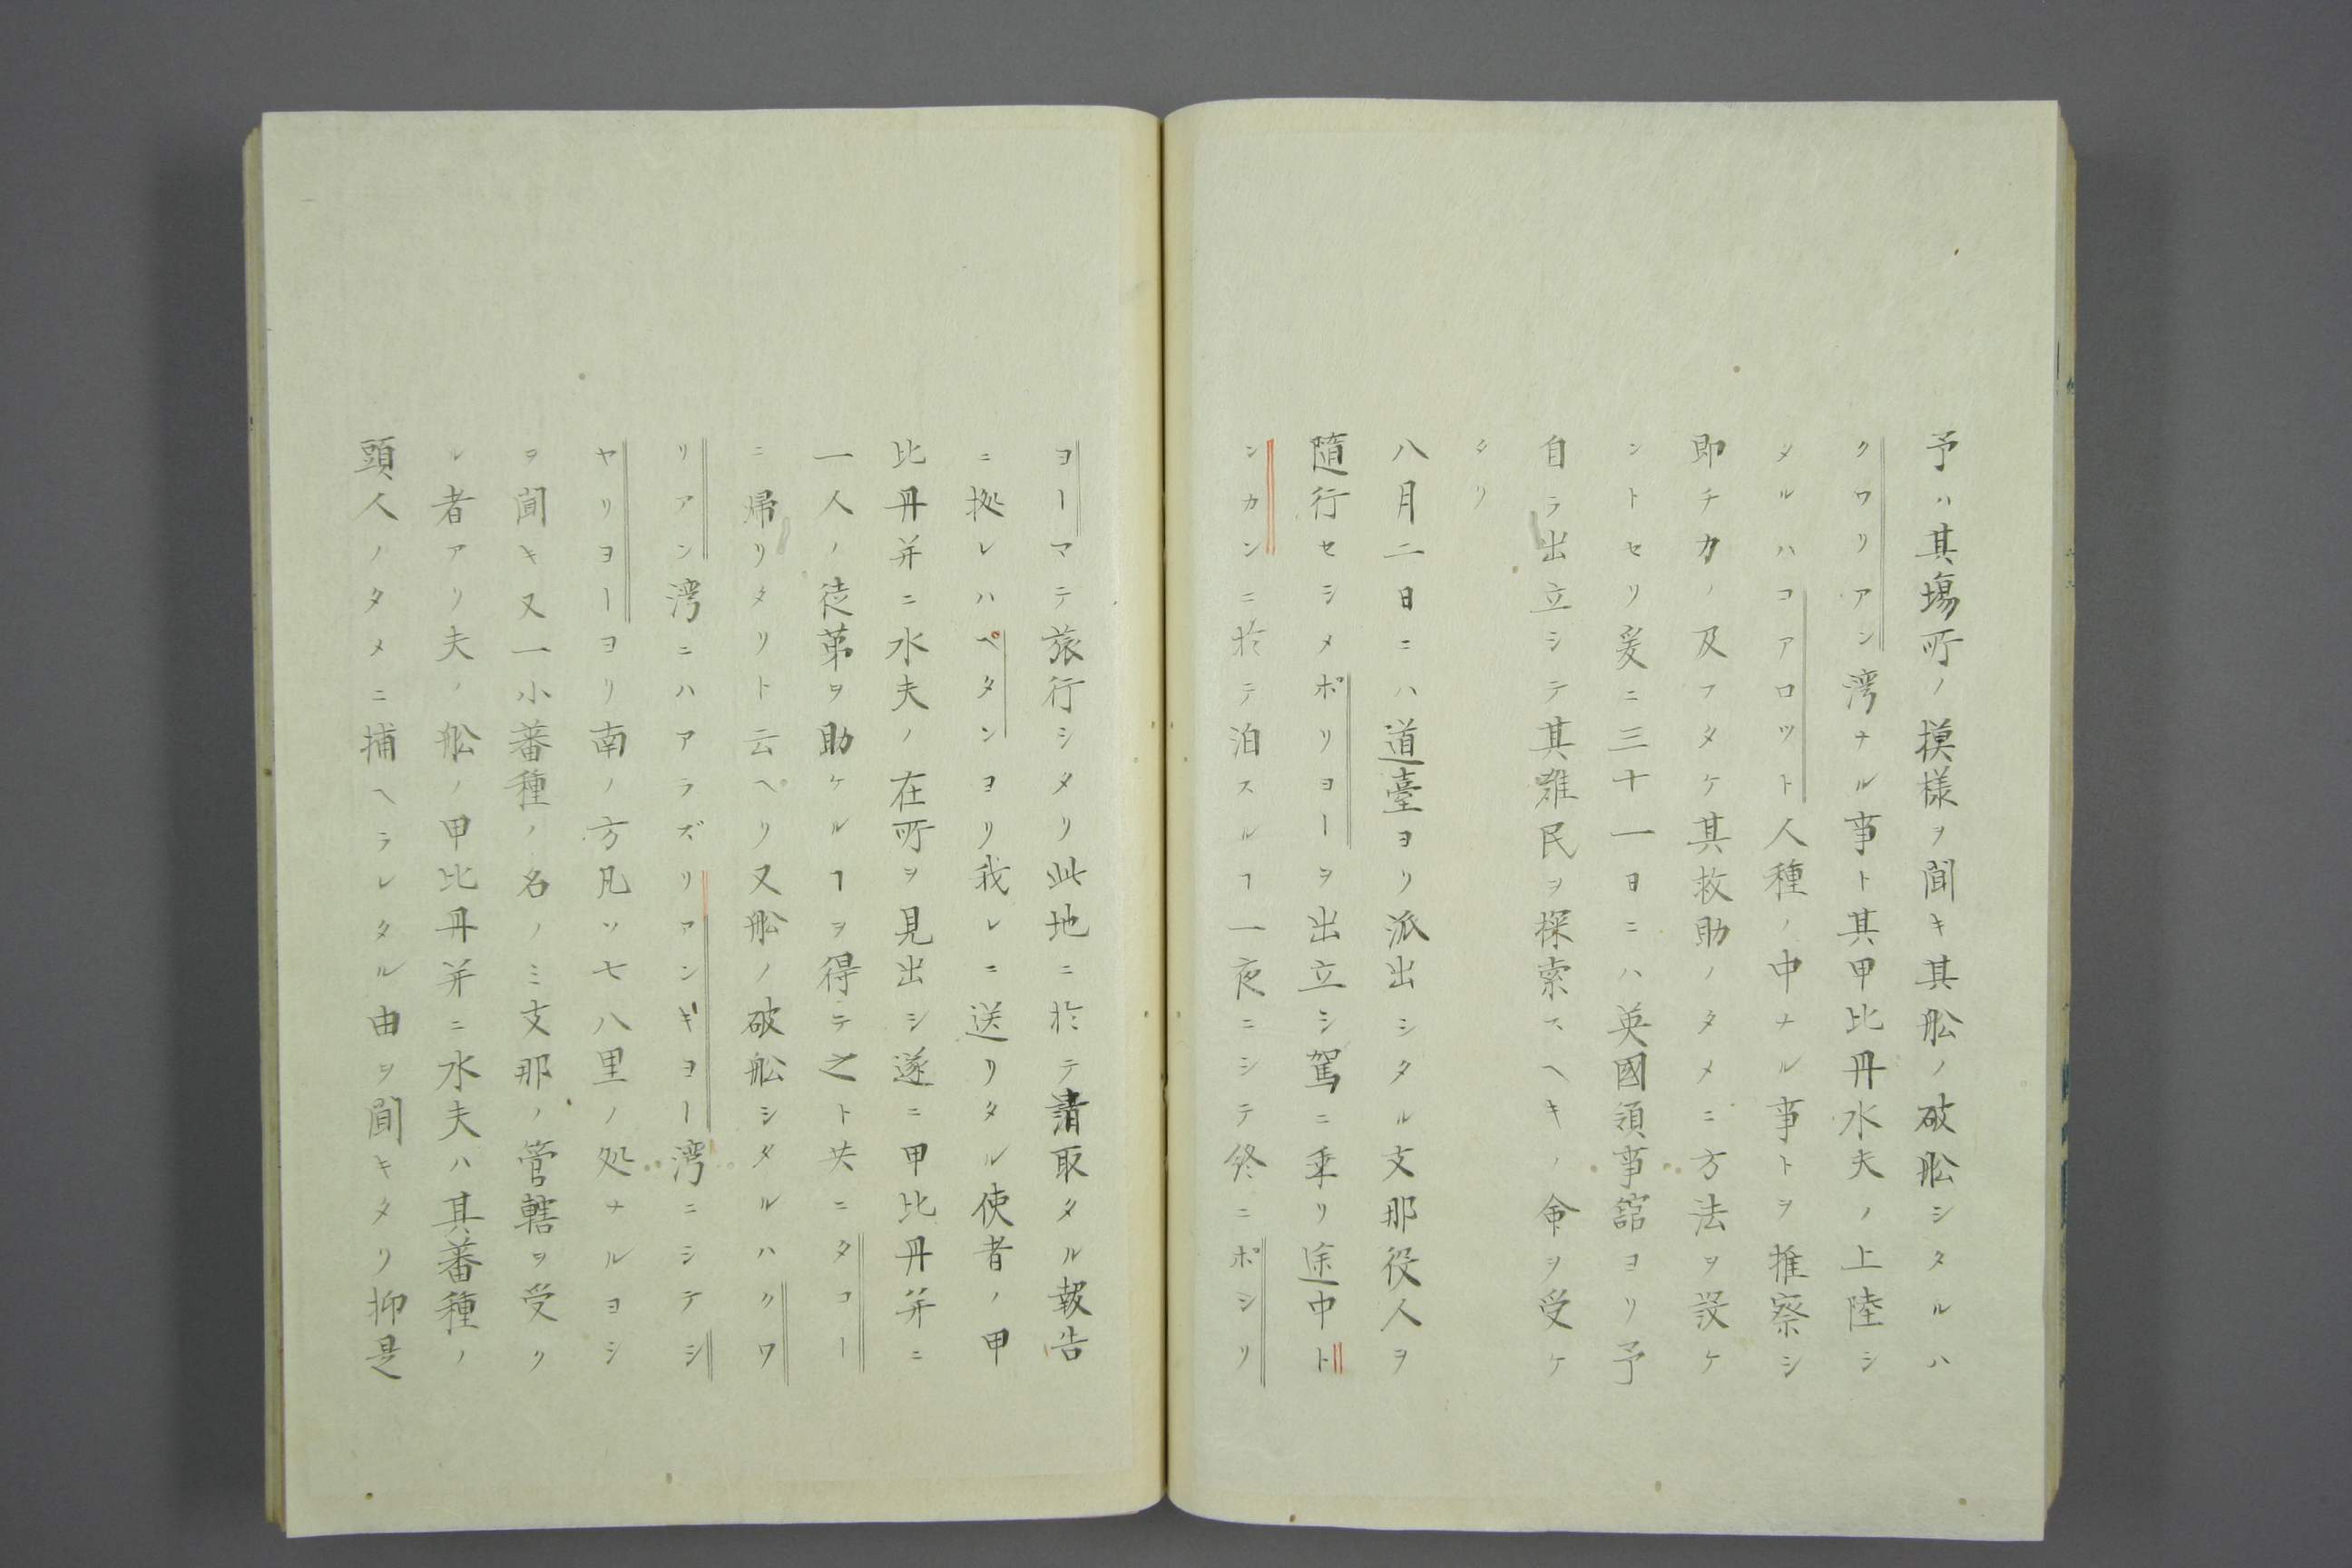 予ハ其塲所ノ摸様ヲ聞キ其舩ノ破舩シタルハ
クワリアン湾ナル事ト其甲比丹水夫ノ上陸シ
タルハコアロツト人種ノ中ナル事トヲ推察シ
即チカノ及フタケ其救助ノタメニ方法ヲ設ケ
ントセリ爰ニ三十一日ニハ英國領事舘ヨリ予
自ラ出立シテ其難民ヲ探索スヘキノ命ヲ受ケ
タリ
八月二日ニハ道臺ヨリ派出シタル支那役人ヲ
随行セシメポリヨーヲ出立シ駕ニ乗リ途中ト
ンカンニ於テ泊スルヿ一夜ニシテ終ニポシリ
ヨーマテ旅行シタリ此地ニ於テ請取タル報告
ニ拠レハペタンヨリ我レニ送リタル使者ノ甲
比丹并ニ水夫ノ在所ヲ見出シ遂ニ甲比丹并ニ
一人ノ徒苐ヲ助ケルヿヲ得テ之ト共ニタコー
ニ帰リタリト云ヘリ又舩ノ破舩シタルハクワ
リアン湾ニハアラズリアンギヨー湾ニシテシ
ヤリヨーヨリ南ノ方凡ソ七八里ノ処ナルヨシ
ヲ聞キ又一小蕃種ノ名ノミ支那ノ管轄ヲ受ク
ル者アリ夫ノ舩ノ甲比丹并ニ水夫ハ其蕃種ノ
頭人ノタメニ捕ヘラレタル由ヲ聞キタリ抑是